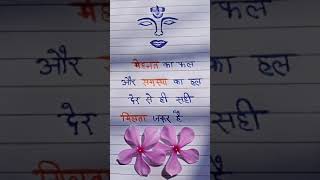 मेहनत का फल
और समस्या का हल
देर से ही सही
मिलता जरूर है